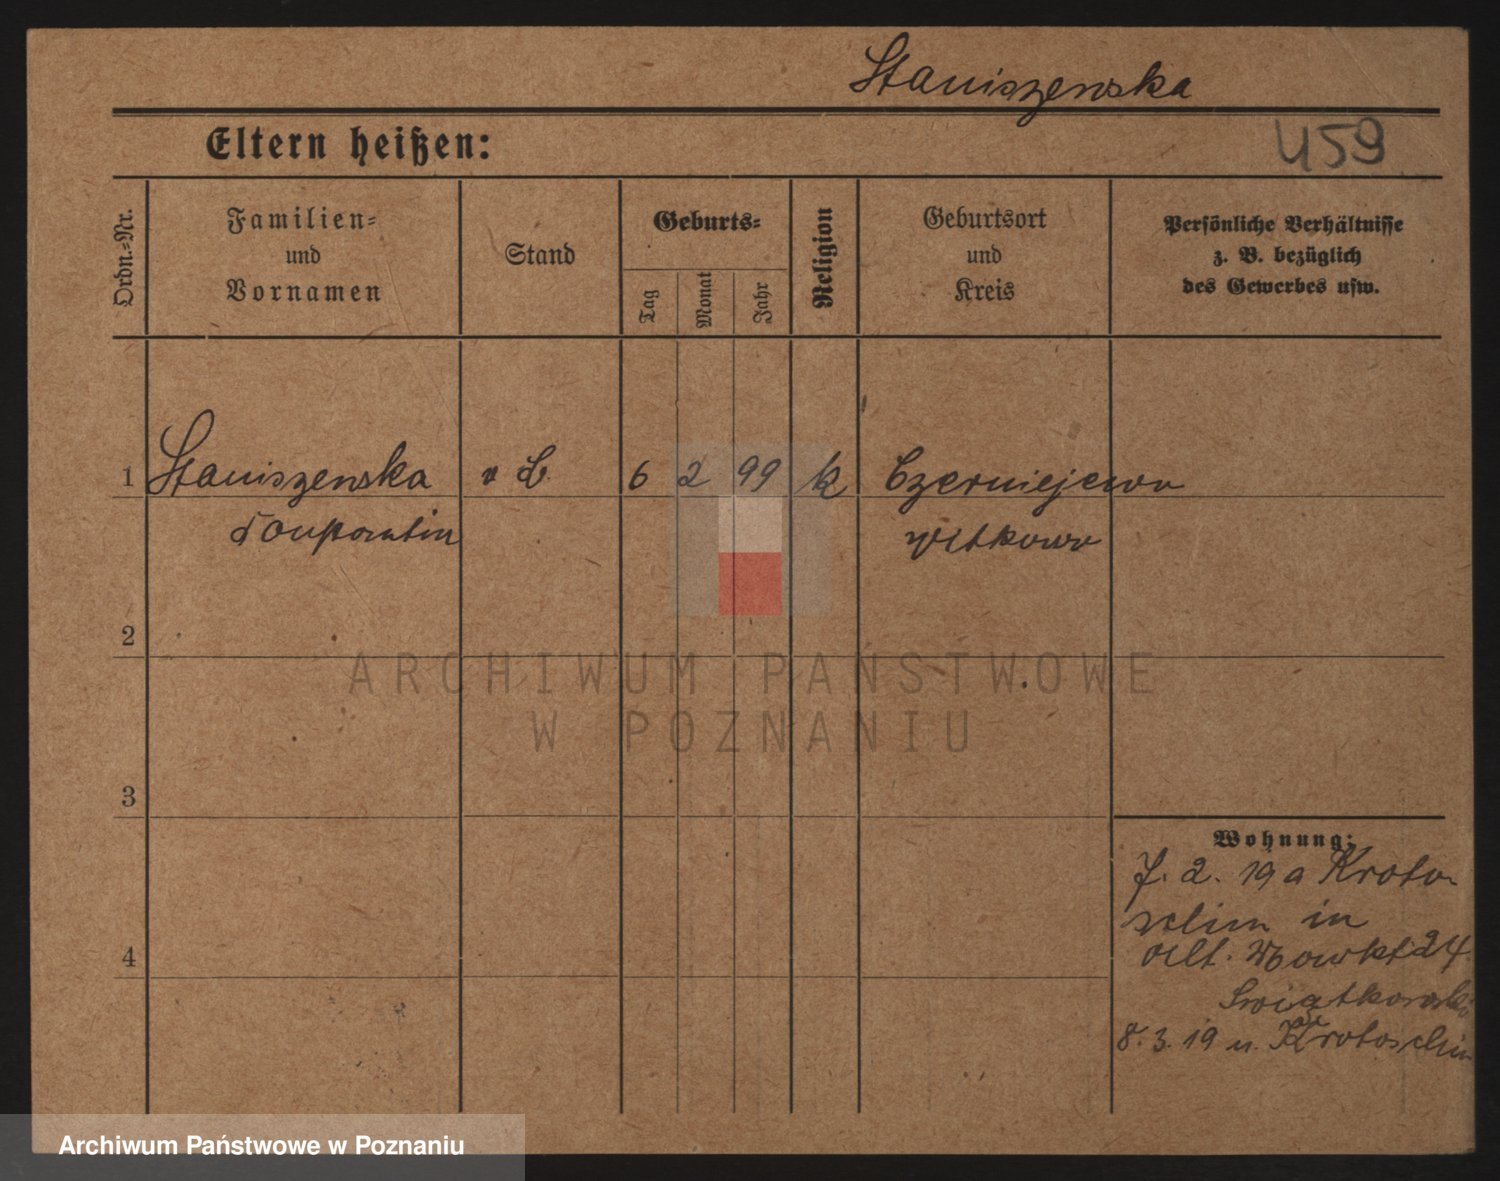 Staniszewska
Eltern heißen:
459
Ordn.=Nr.
Familien=
und
Vornamen
Stand
Geburts=
Tag
Monat
Jahr
Religion
Geburtsort
und
Kreis
Persönliche Verhältnisse
z. B. bezüglich
des Gewerbes usw.
1 Staniszewska 6 2 99 k Czerniejewo
Witkowo
2
3
4
Wohnung:
7. 2. 19 a Kroto
schin in
Alt. Markt 24
Swiątkowski
8. 3. 19 n. Krotoschin
ARCHIWUM PAŃSTWOWE
W POZNANIU
Archiwum Państwowe w Poznaniu